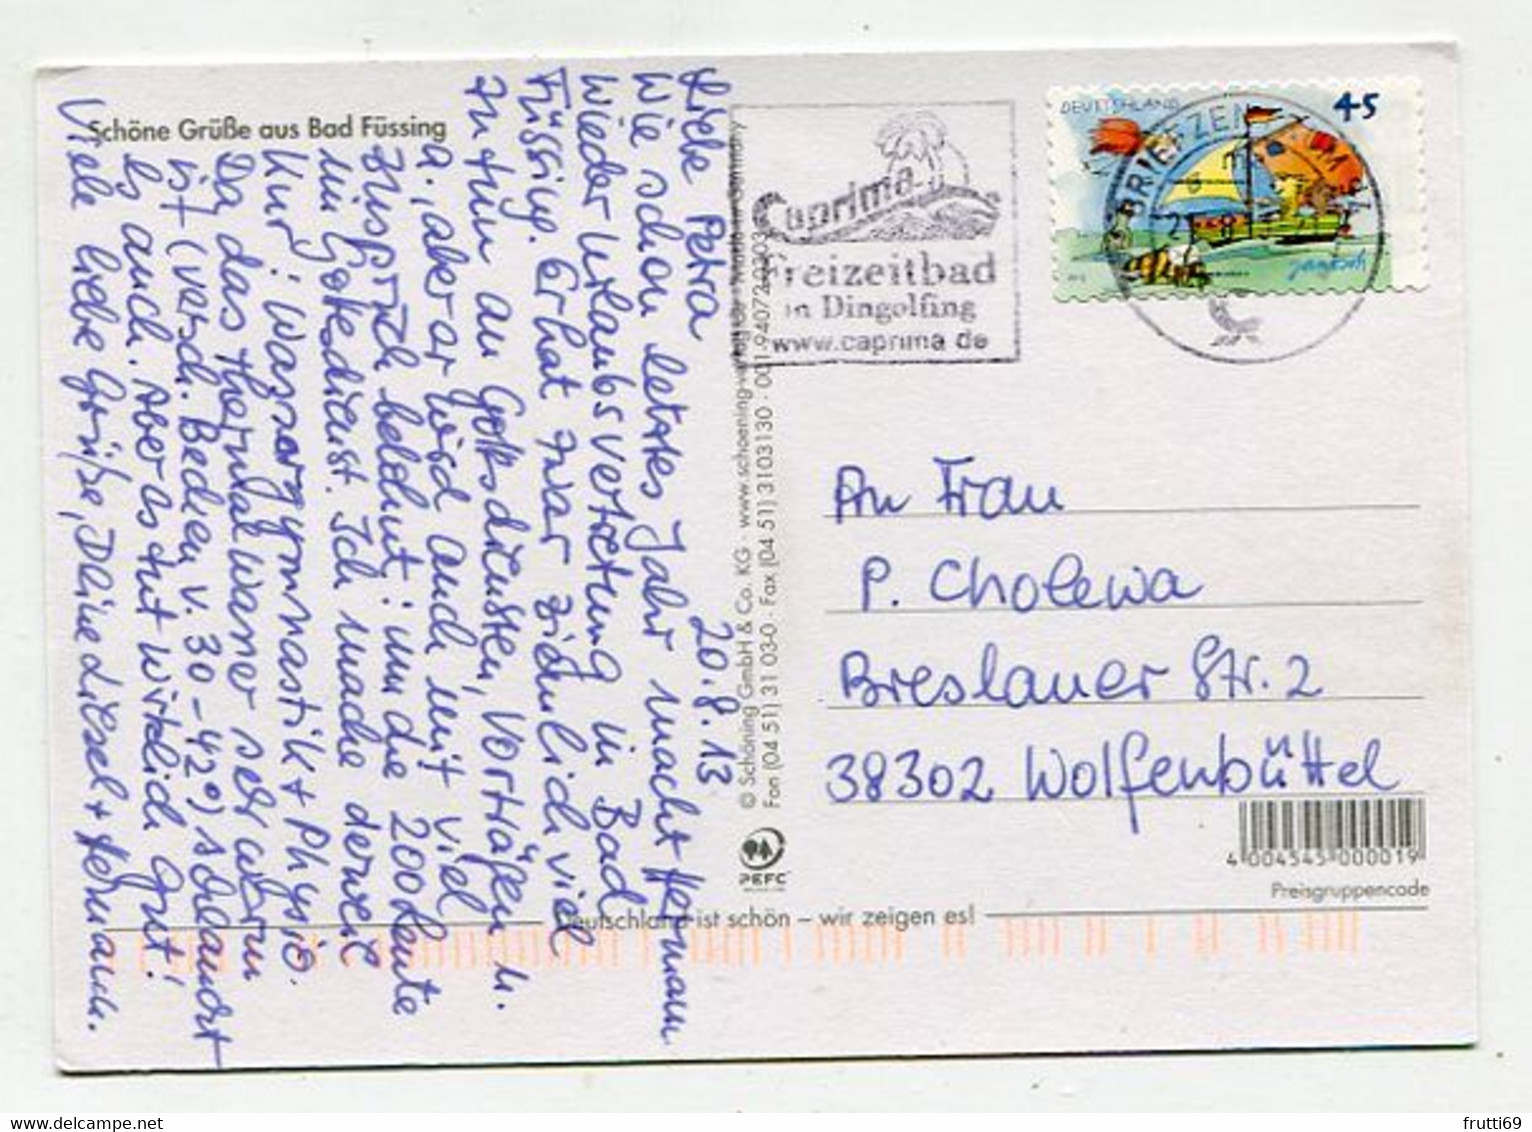 Schöne Grüße aus Bad Füssing
Liebe Petra
20.8.13
Wie schon letztes Jahr macht Hermann
wieder Urlaubsvertretung in Bad
Füssing. Er hat zwar ziemlich viel
zu tun an Gottesdiensten, Vorträgen u.
a., aber er wird auch mit viel
Zuspruch belohnt: um die 200 Leute
im Gottesdienst. Ich mache derweil
Kur: Wassergymnastik + Physio.
Da das Thermalwasser sehr warm
ist (versch. Becken v. 30-42°) schlaucht
es auch. Aber es tut wirklich gut!
Viele liebe Grüße, Deine Liesel + Hermann.
© Schöning GmbH & Co. KG · www.schoening-verlag.de
Fon (04 51) 31 03-0 Fax (04 51) 3103130
PEFC
Caprima
Freizeitbad
in Dingolfing
www.caprima de
DEUTSCHLAND
45
janosch
BRIEFZENTRUM
An Frau
P. Cholewa
Breslauer Str. 2
38302 Wolfenbüttel
4 004545 000019
Preisgruppencode
Deutschland ist schön – wir zeigen es!
www.delcampe.net
frutti69